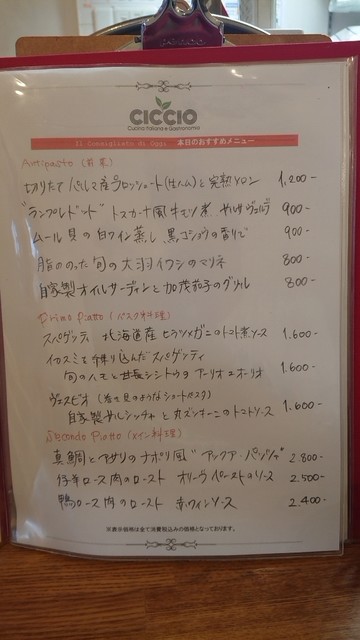 CICCIO
Cucina Italiana e Gastronomia
Il Consigliato di Oggi 本日のおすすめメニュー
Antipasto (前菜)
切りたて パルマ産プロシュート(生ハム)と完熟メロン 1,200-
"ランプレドット" トスカーナ風牛モツ煮 サルサヴェルデ 900-
ムール貝の白ワイン蒸し 黒コショウの香りで 900-
脂ののった旬の大羽イワシのマリネ 800-
自家製オイルサーディンと加茂茄子のグリル 800-
Primo Piatto (パスタ料理)
スパゲッティ 北海道産ヒラツメガニのトマト煮ソース 1.600-
イカスミを練り込んだスパゲッティ
旬のハモと甘長シシトウのアーリオエオーリオ 1.600-
ヴェスビオ (巻き貝のようなショートパスタ)
自家製サルシッチャと丸ズッキーニのトマトソース 1.600-
Secondo Piatto (メイン料理)
真鯛とアサリのナポリ風 "アックア・パッツァ" 2.800-
仔羊ロース肉のロースト オリーヴペーストのソース 2.500-
鴨ロース肉のロースト 赤ワインソース 2.400-
※表示価格は全て消費税込みの価格となっております。